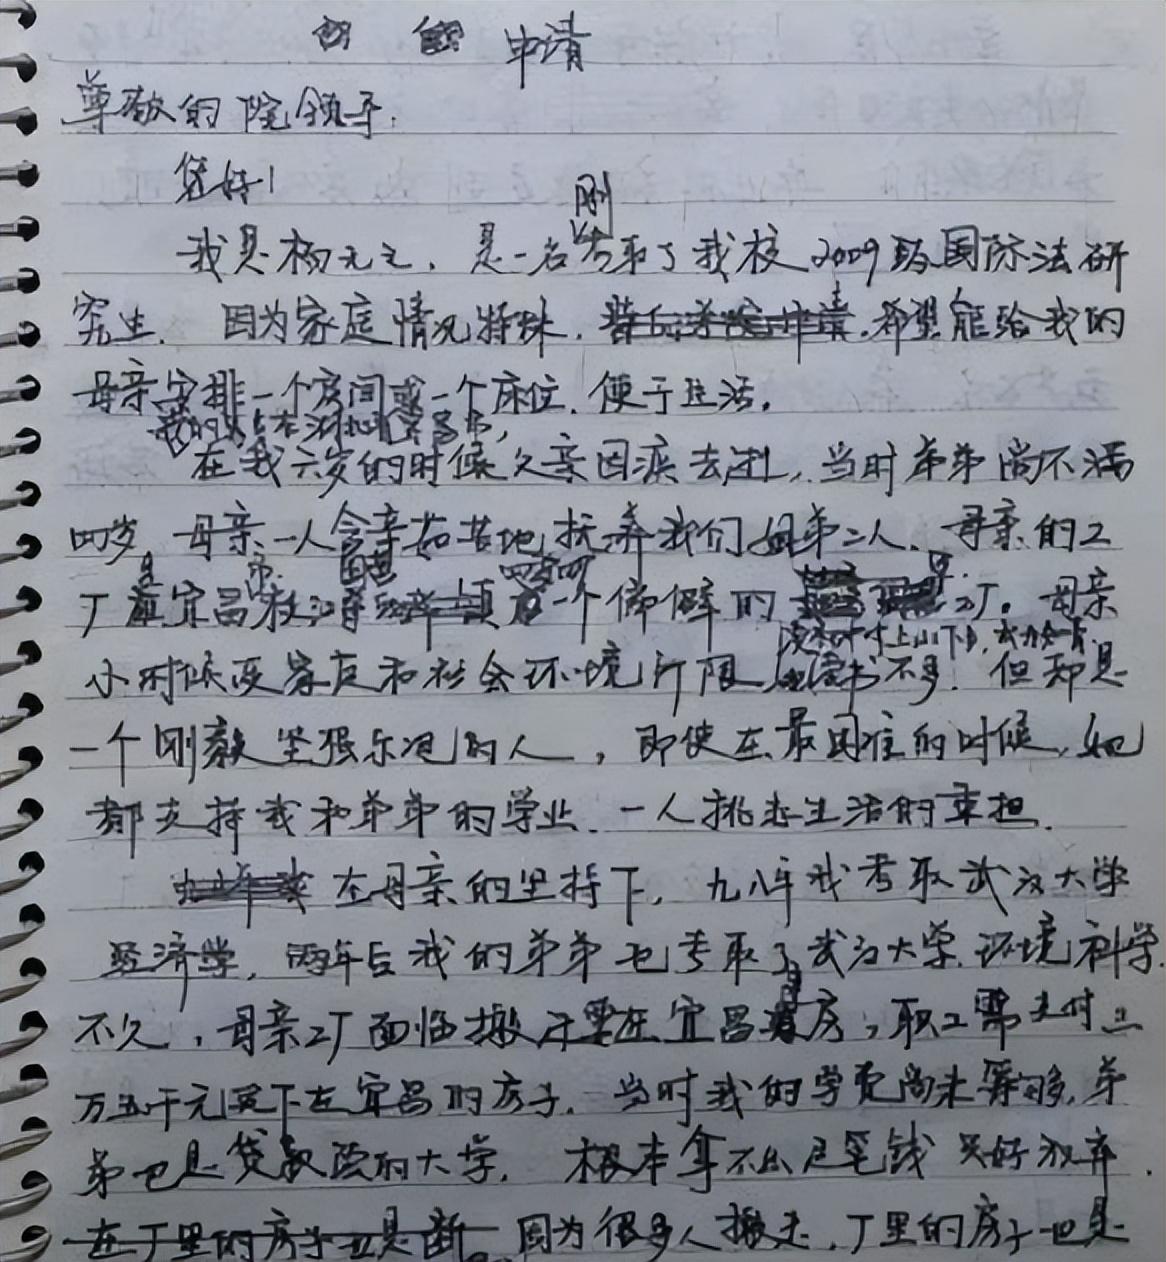 申请
尊敬的院领导：
您好！
刚
我是杨元元，是一名考取了我校2009级国际法研
究生，因为家庭情况特殊，希望能给我的
母亲安排一个房间或一个床位，便于生活。
在我六岁的时候父亲因病去世，当时弟弟尚不满
四岁，母亲一人含辛茹苦地抚养我们姐弟二人，母亲的工
厂是宜昌市枝江一个偏僻的工厂。母亲
小时候受家庭和社会环境所限读书不多！但却是
一个刚毅坚强乐观的人，即使在最困难的时候，她
都支持我和弟弟的学业，一人挑起生活的重担。
在母亲的坚持下，九八年我考取武汉大学
经济学，两年后我的弟弟也考取了武汉大学环境科学
不久，母亲工厂面临搬迁宜昌房，职工需支付
万五千元买下在宜昌的房子，当时我的学费尚未筹够，弟
弟也是贷款读的大学，根本拿不出这笔钱只好放弃，
在厂里的房子也是 因为很多人搬走，厂里的房子也是